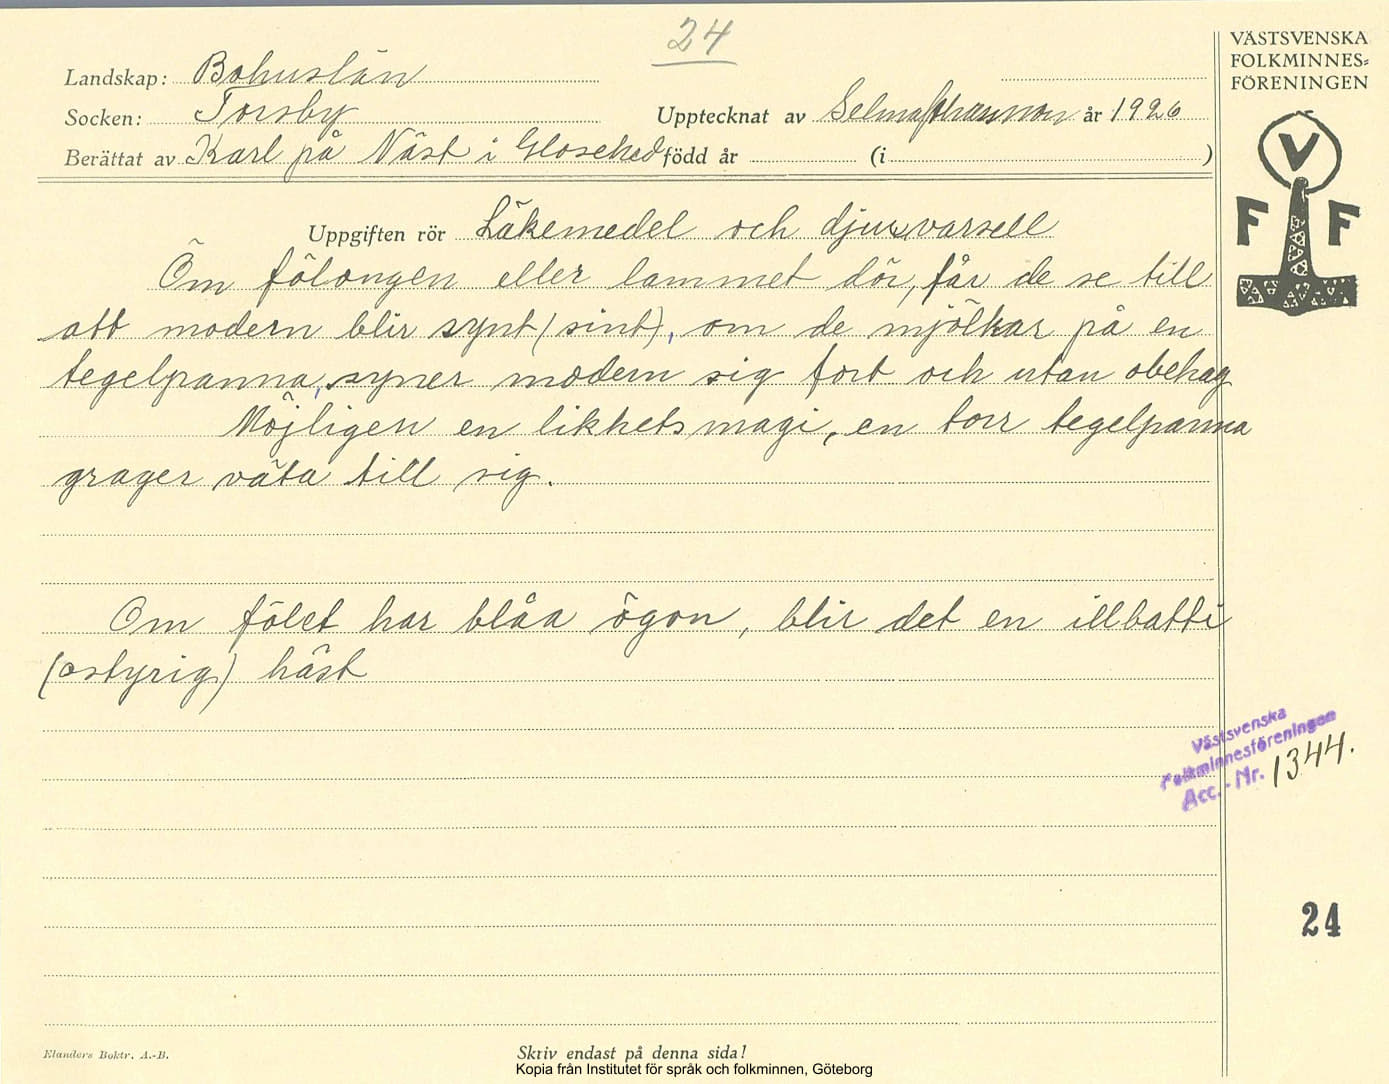 24
VÄSTSVENSKA
FOLKMINNES=
FÖRENINGEN
Landskap: Bohuslän
Socken: Torsby Upptecknat av Selma Johansson år 1926
Berättat av Karl på Näst i Glosehed född år (i )
V
F F
Uppgiften rör Läkemedel och djurvarsell
Om fölongen eller lammet dör, får de se till
att modern blir synt (sint), om de mjölkar på en
tegelpanna, syner modern sig fort och utan obehag
Möjligen en likhetsmagi, en torr tegelpanna
grager väta till sig.
Om fölet har blåa ögon, blir det en illbatti
(ostyrig) häst
Västsvenska
Folkminnesföreningen
Acc.-Nr. 1344.
24
Elanders Boktr. A.-B.
Skriv endast på denna sida!
Kopia från Institutet för språk och folkminnen, Göteborg